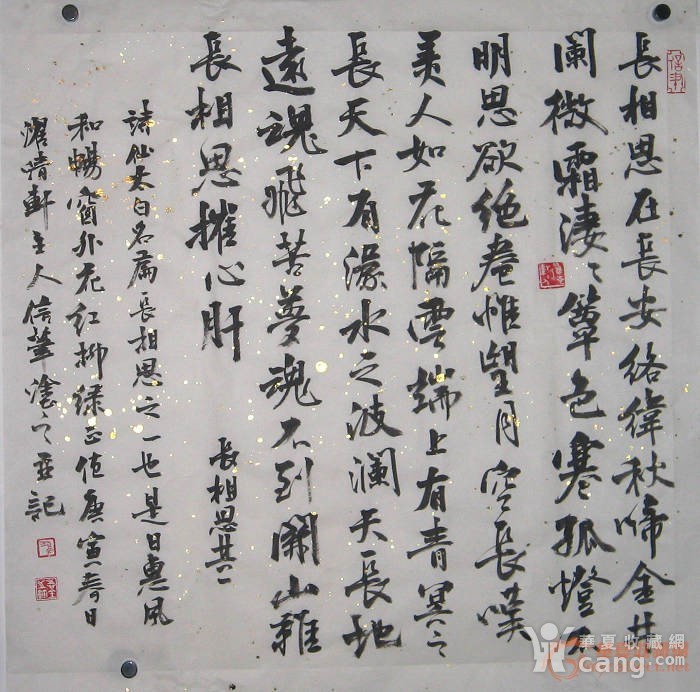 長相思在長安絡緯秋啼金井
闌微霜淒〻簟色寒孤燈不
明思欲絕卷帷望月空長嘆
美人如花隔雲端上有青冥之
長天下有淥水之波瀾天長地
遠魂飛苦夢魂不到關山難
長相思摧心肝
長相思其一
詩仙太白名篇長相思之一也是日惠風
和暢窗外花紅柳綠正值庚寅春日
情軒主人信筆塗之並記
華夏收藏網
cang.com